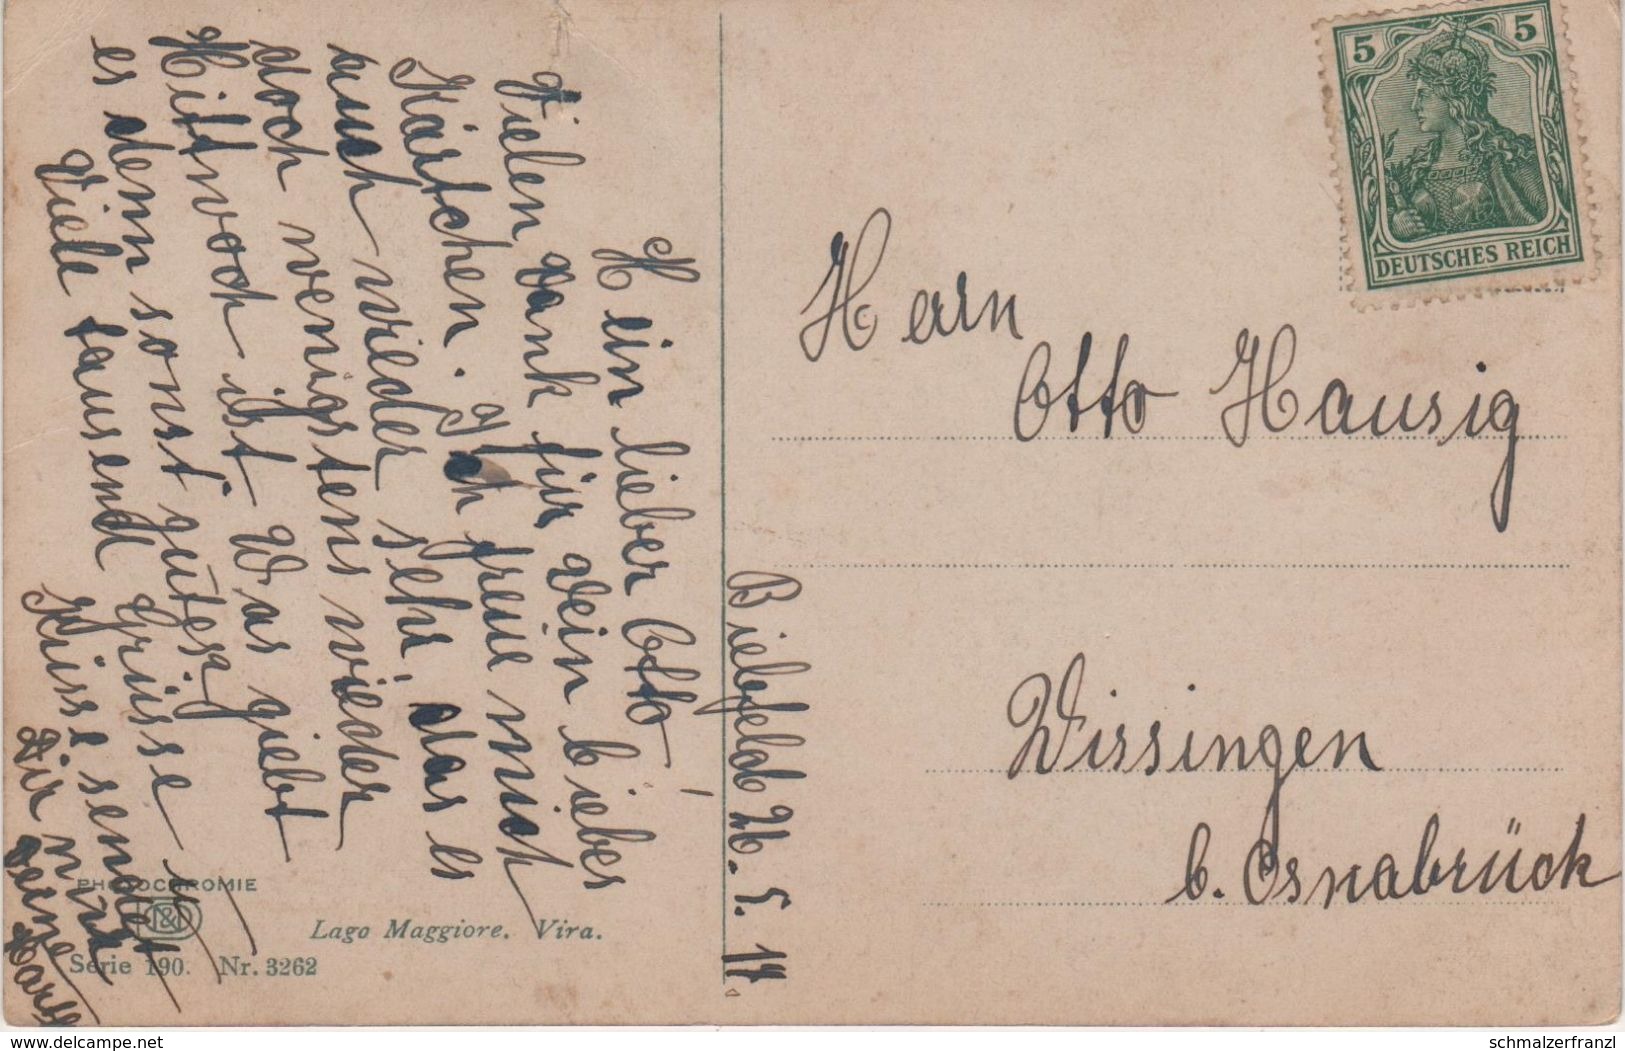 Mein lieber Otto!
Vielen Dank für Dein liebes
Kärtchen. Ich freue mich
auch wieder sehr, das es
doch wenigstens wieder
Mittwoch ist. Was giebt
es denn sonst gutes,
Viele tausend Grüsse u.
Küsse sendet
Dir nur
Deine
Bielefeld
Herrn
Otto Hausig
Wissingen
b. Osnabrück
5 5
DEUTSCHES REICH
PHOTOCHROMIE
N&C
Lago Maggiore. Vira.
Serie 190. Nr. 3262
www.delcampe.net
schmalzerfranzl